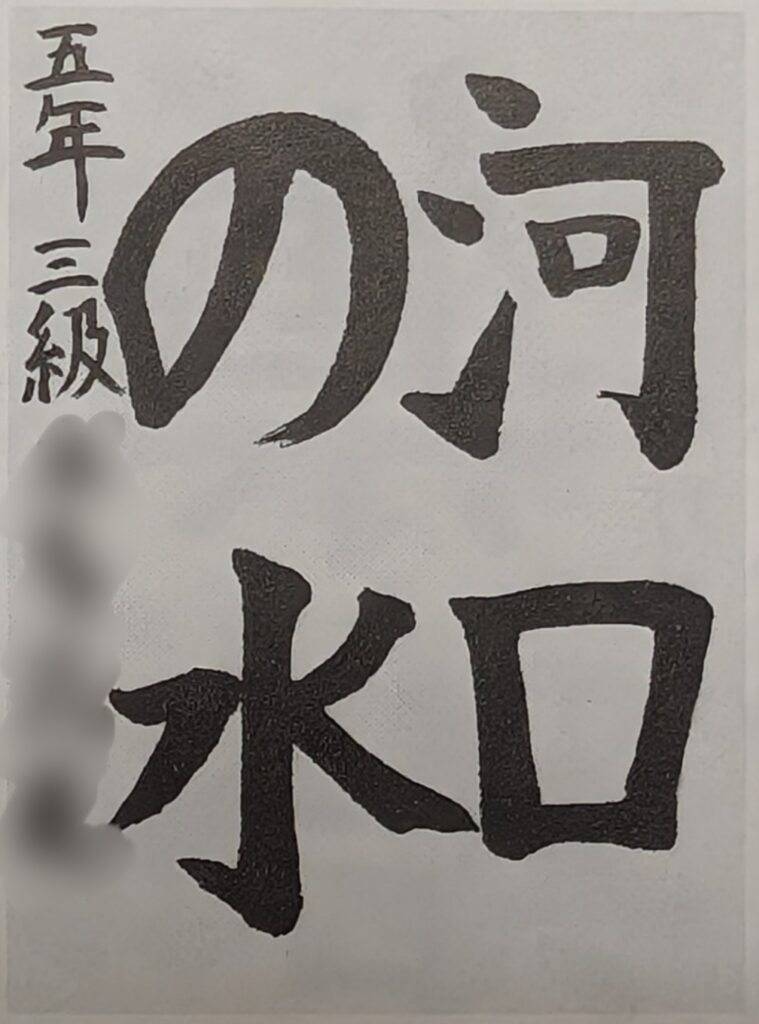 河口
の水
五年 三級